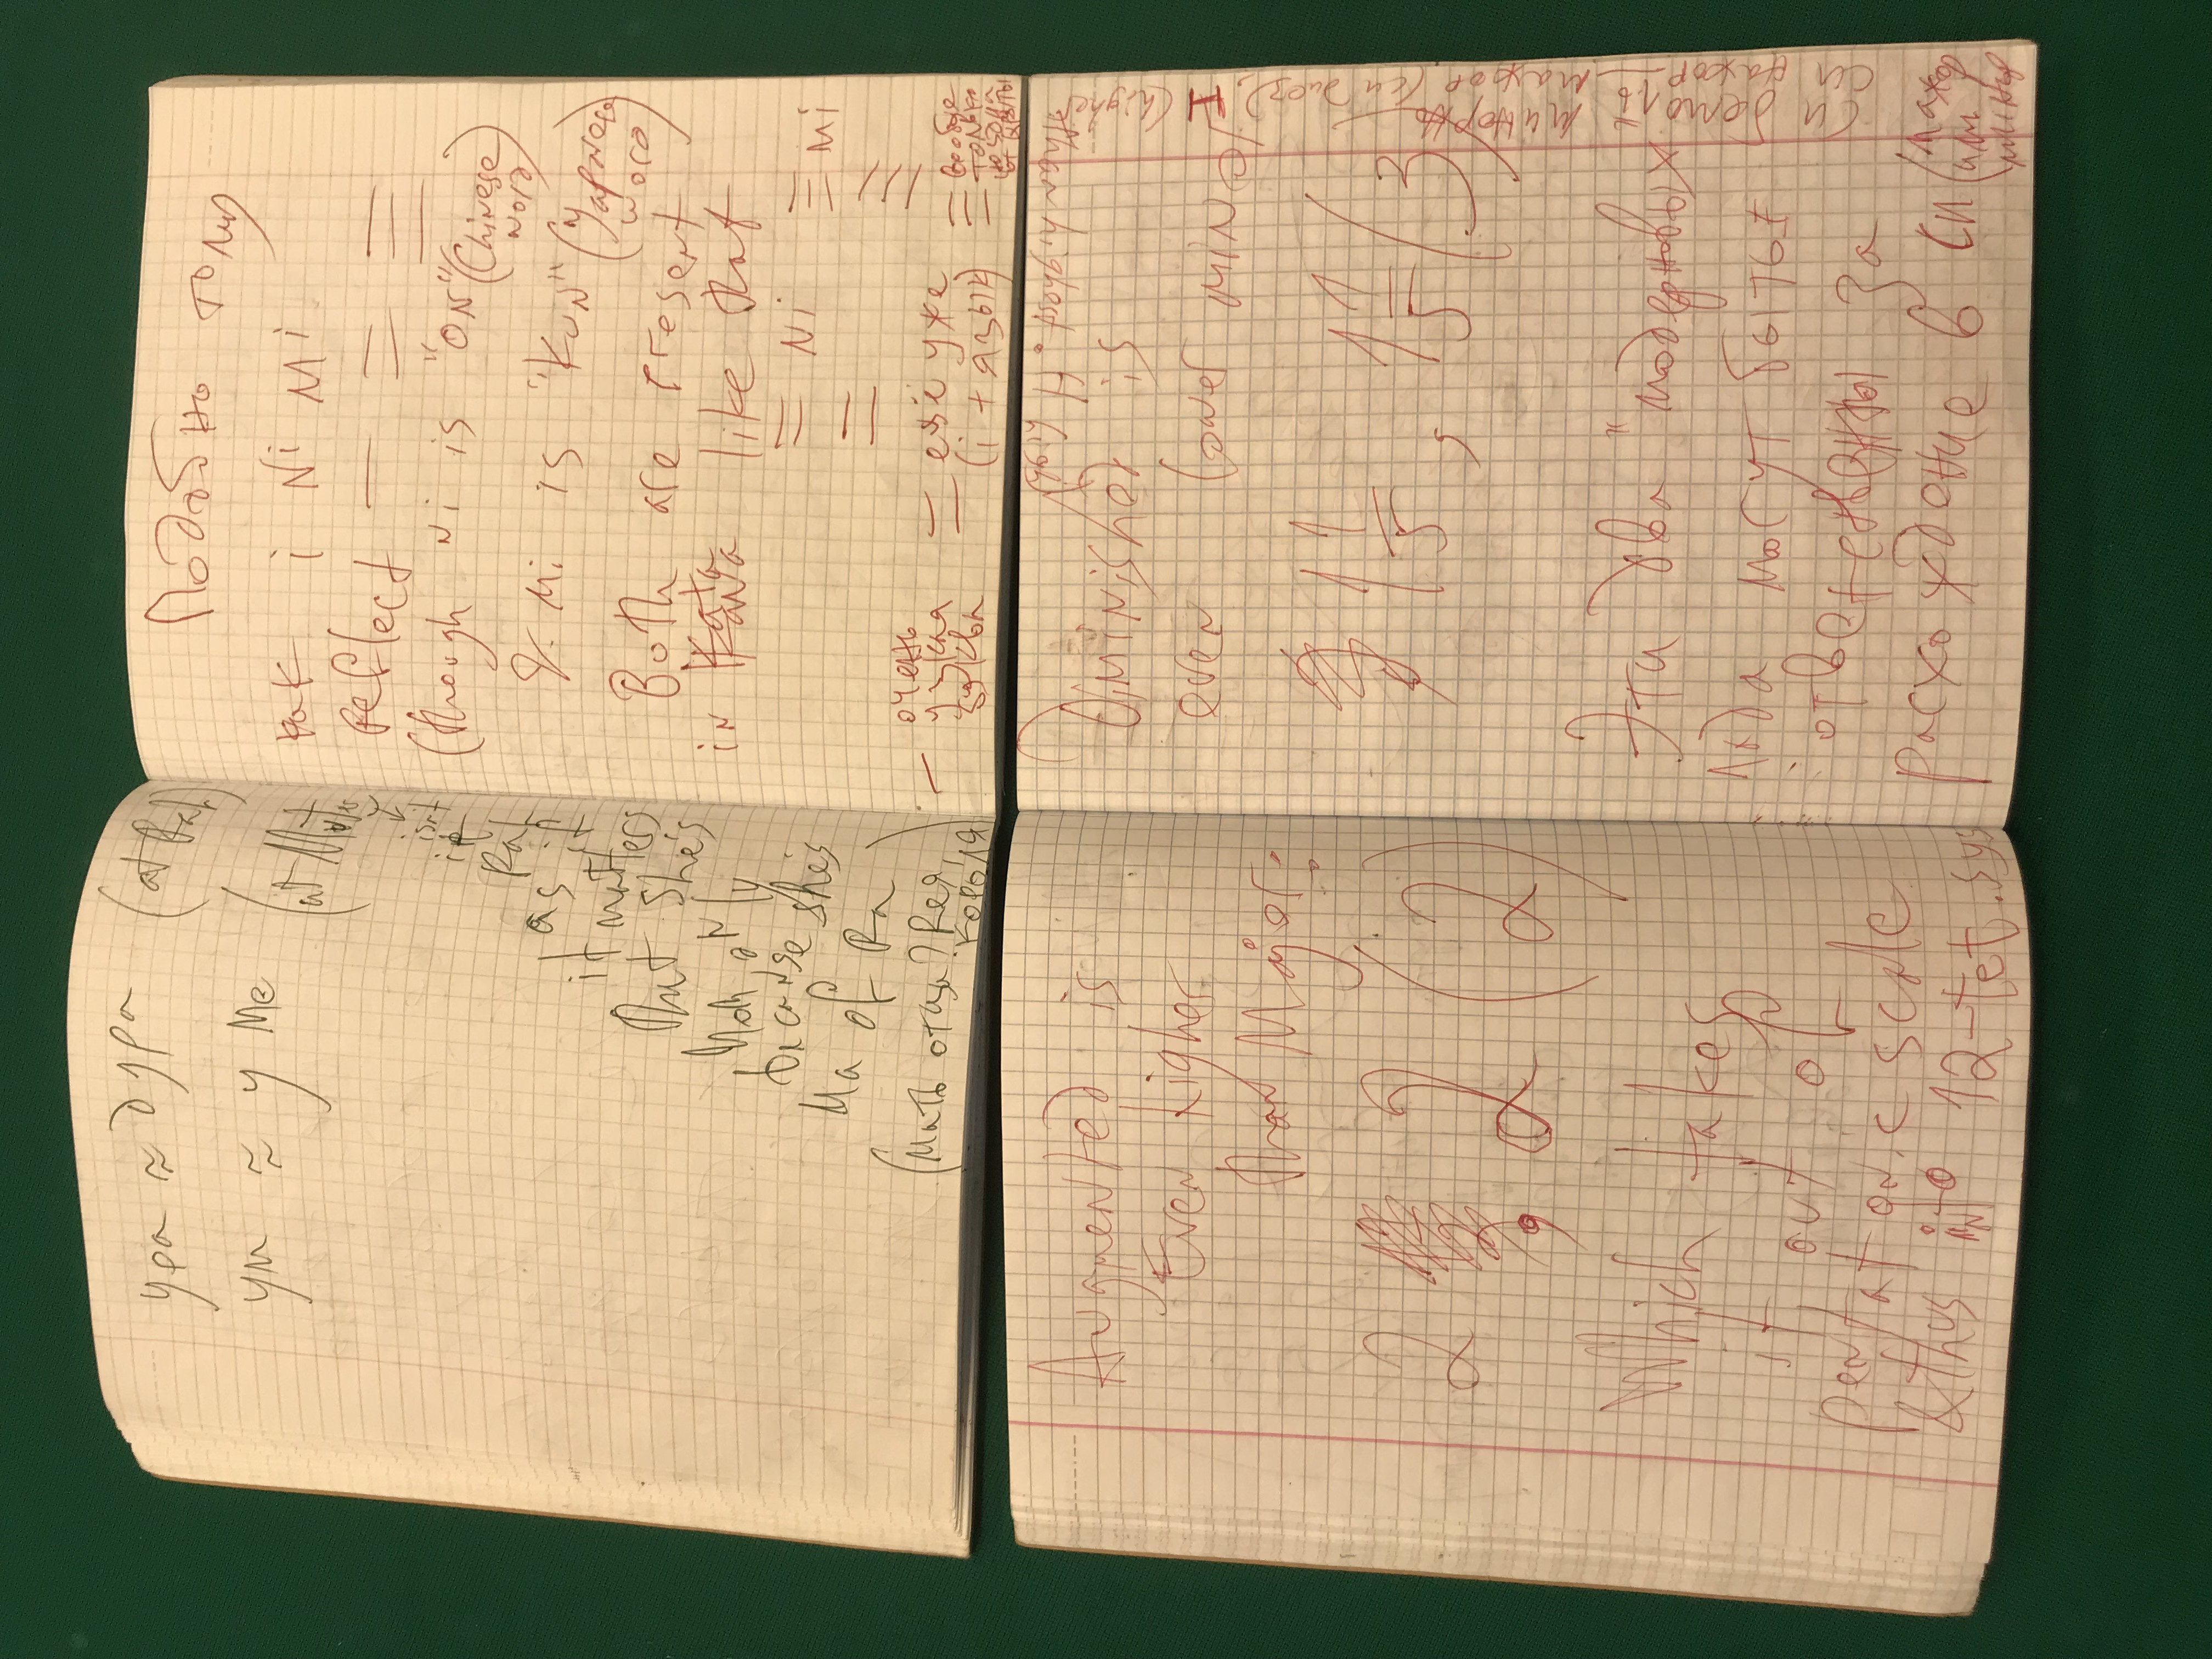 ура ≈ дура (at Rah)
ум ≈ у Ме (at Mater
isit
it
Rah
as if
it matters
that she's
Moth only
because she's
Ma of Ra
(мать отца? Rея,
короля)
Подобно тому
как i Ni Mi
reflect — = ≡
(though Ni is "ON" (Chinese
word)
& Mi is "KUN" (Japanese
word)
Both are present
in Kata
Kana like that
= Ni ≡ Mi
очень
узкая
буква
= ещё уже
(i + язык)
≡ вообще
только
Augmented is
Even higher
than Major:
2, 2 (2)
Which takes
it out of
pentatonic scale
& thus into 12-tet.sys
Diminished is
even lower minor
1 1/5, 1 1/5 (3)
Эти два "модерновых
лада могут быть
ответственны за
расхождение в си (мажор
или
минор
си бемоль минорно
си мажор мажор (си диез), H (higher
than highest. H high)